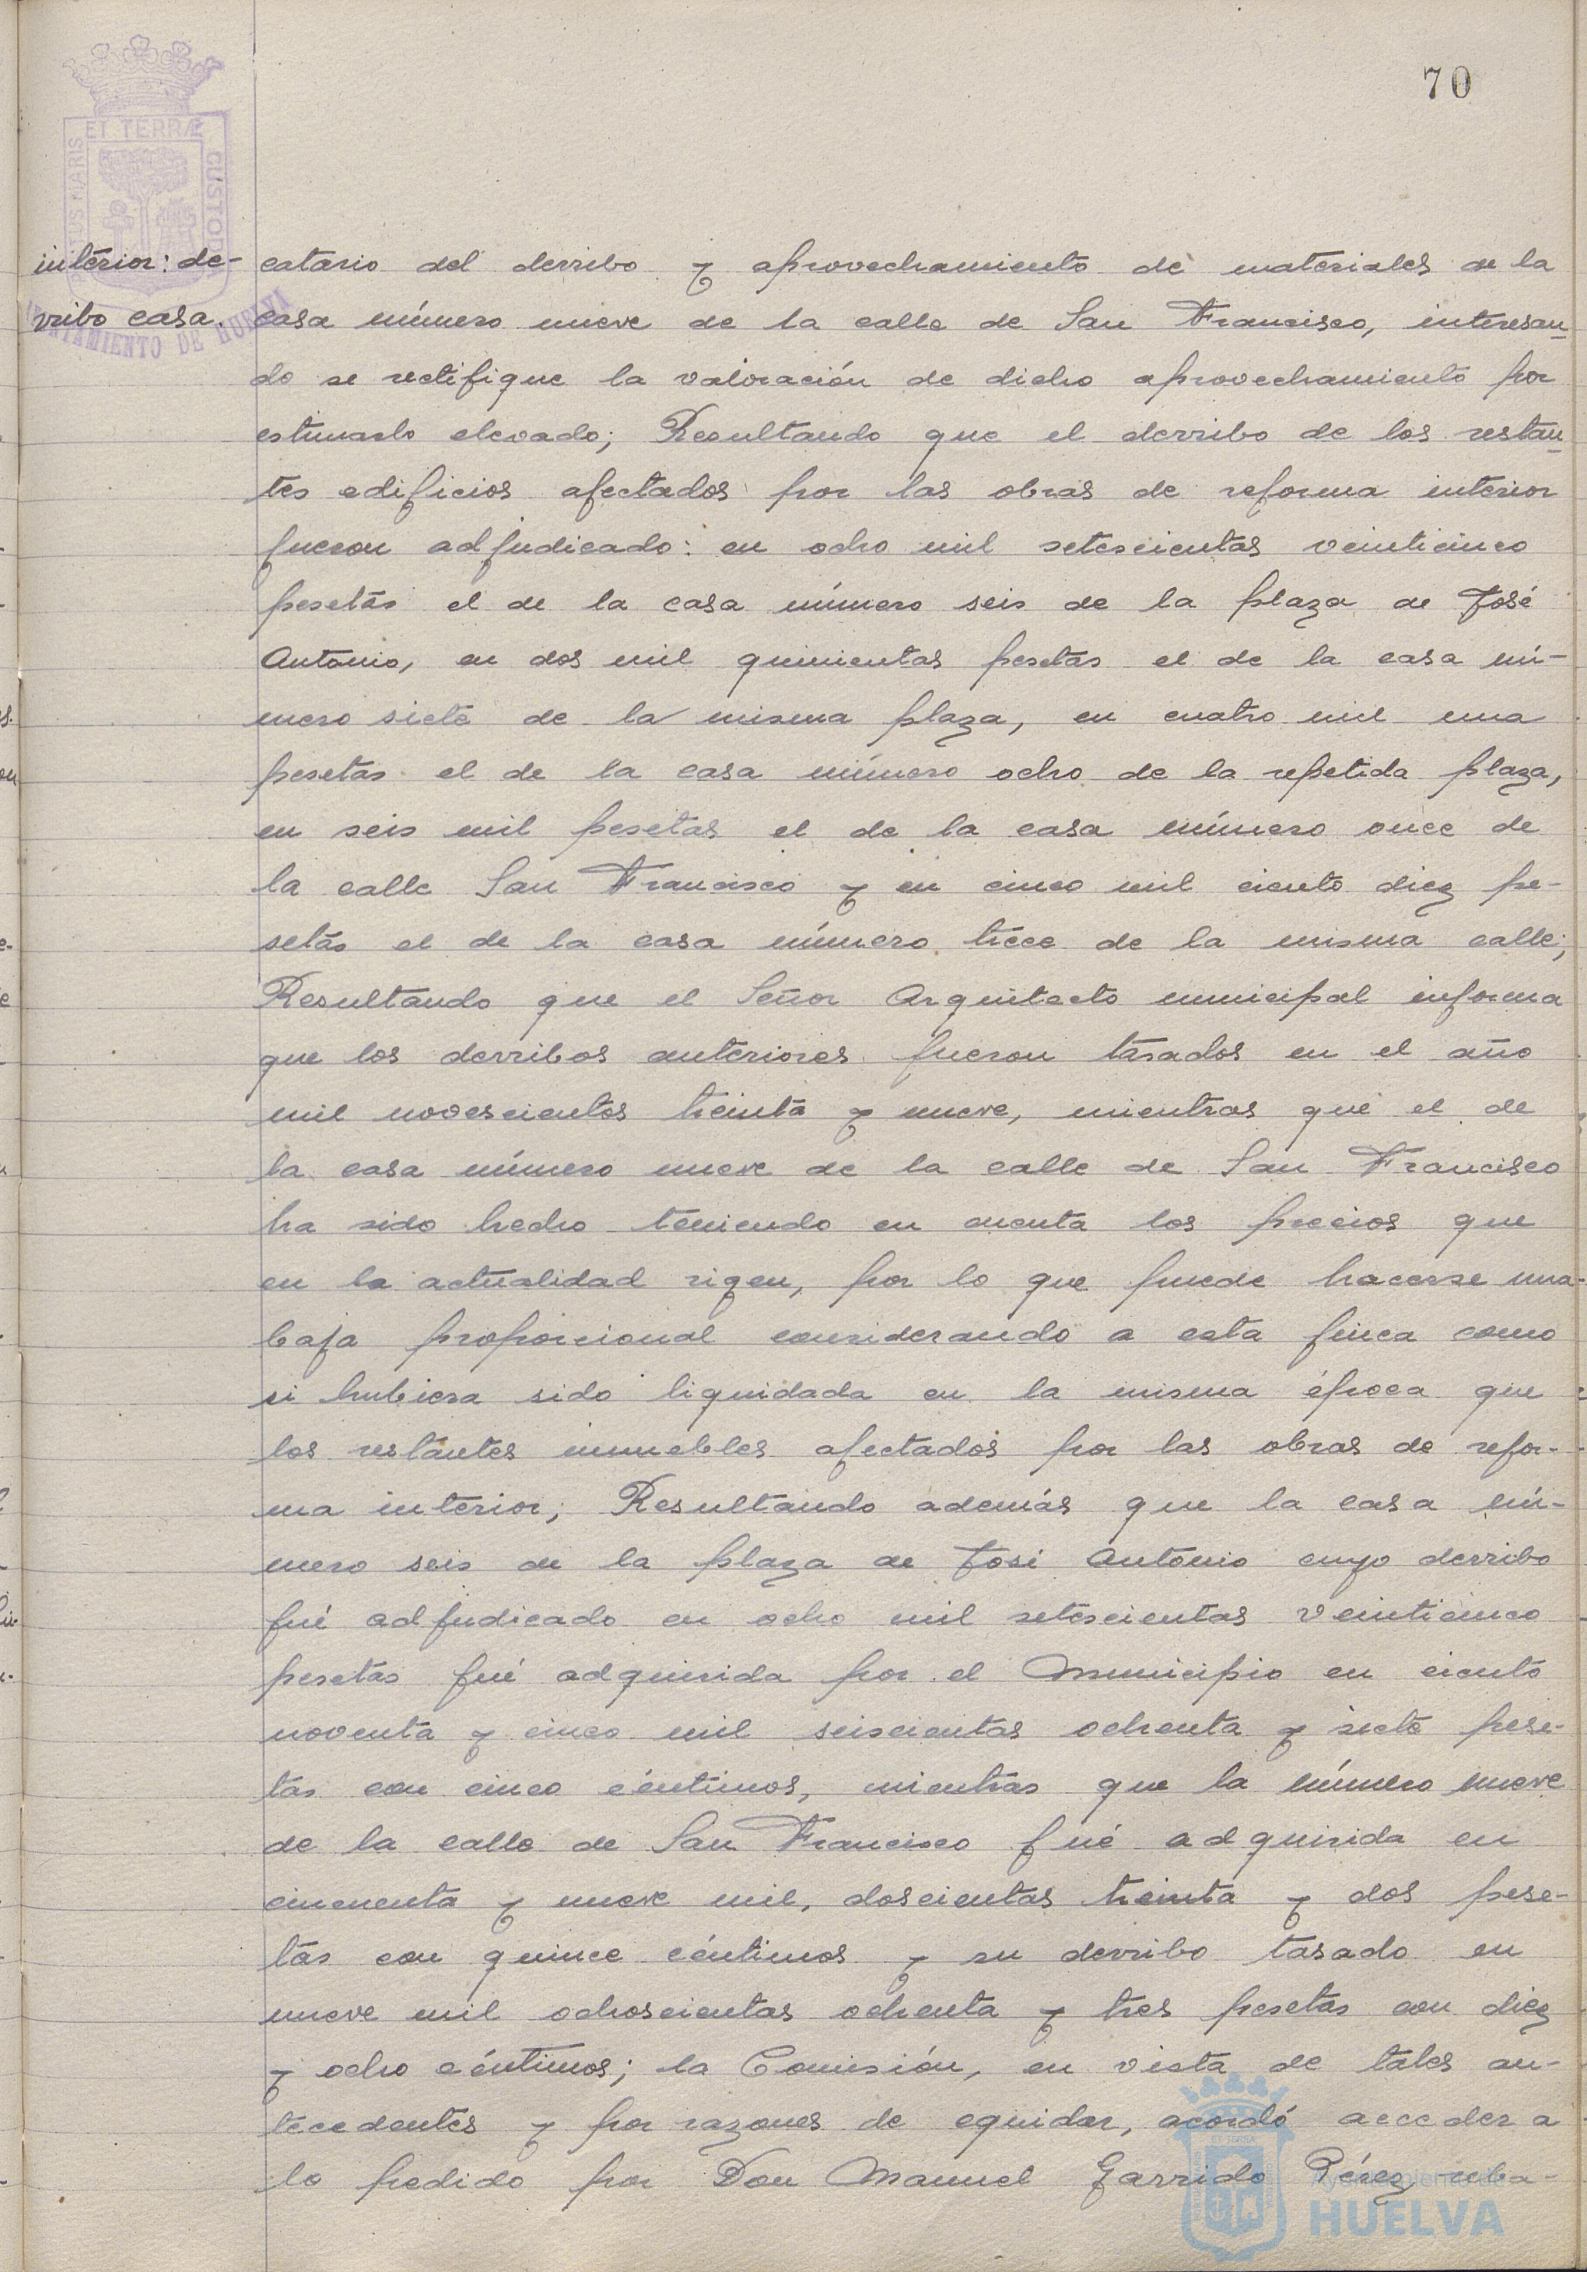 70
interior: de-
rribo casa.
catario del derribo y aprovechamiento de materiales de la
casa número nueve de la calle de San Francisco, interesan-
do se rectifique la valoración de dicho aprovechamiento por
estimarlo elevado; Resultando que el derribo de los restan-
tes edificios afectados por las obras de reforma interior
fueron adjudicado: en ocho mil setescientas veinticinco
pesetas el de la casa número seis de la plaza de José
Antonio, en dos mil quinientas pesetas el de la casa nú-
mero siete de la misma plaza, en cuatro mil una
pesetas el de la casa número ocho de la repetida plaza,
en seis mil pesetas el de la casa número once de
la calle San Francisco y en cinco mil ciento diez pe-
setas el de la casa número trece de la misma calle;
Resultando que el Señor Arquitecto municipal informa
que los derribos anteriores fueron tasados en el año
mil novescientos treinta y nueve, mientras que el de
la casa número nueve de la calle de San Francisco
ha sido hecho teniendo en cuenta los precios que
en la actualidad rigen, por lo que puede hacerse una
baja proporcional considerando a esta finca como
si hubiera sido liquidada en la misma época que
los restantes inmuebles afectados por las obras de refor-
ma interior; Resultando además que la casa nú-
mero seis de la plaza de José Antonio cuyo derribo
fué adjudicado en ocho mil setescientas veinticinco
pesetas fué adquirida por el Municipio en ciento
noventa y cinco mil seiscientas ochenta y siete pese-
tas con cinco céntimos, mientras que la número nueve
de la calle de San Francisco fué adquirida en
cincuenta y nueve mil, doscientas treinta y dos pese-
tas con quince céntimos y su derribo tasado en
nueve mil ochoscientas ochenta y tres pesetas con diez
y ocho céntimos; la Comisión, en vista de tales an-
tecedentes y por razones de equidar, acordó acceder a
lo pedido por Don Manuel Garrido Pérez reba-
ET TERRÆ
CUSTOD
US MARIS
TAMIENTO DE HUELVA
Ayuntamiento de
HUELVA